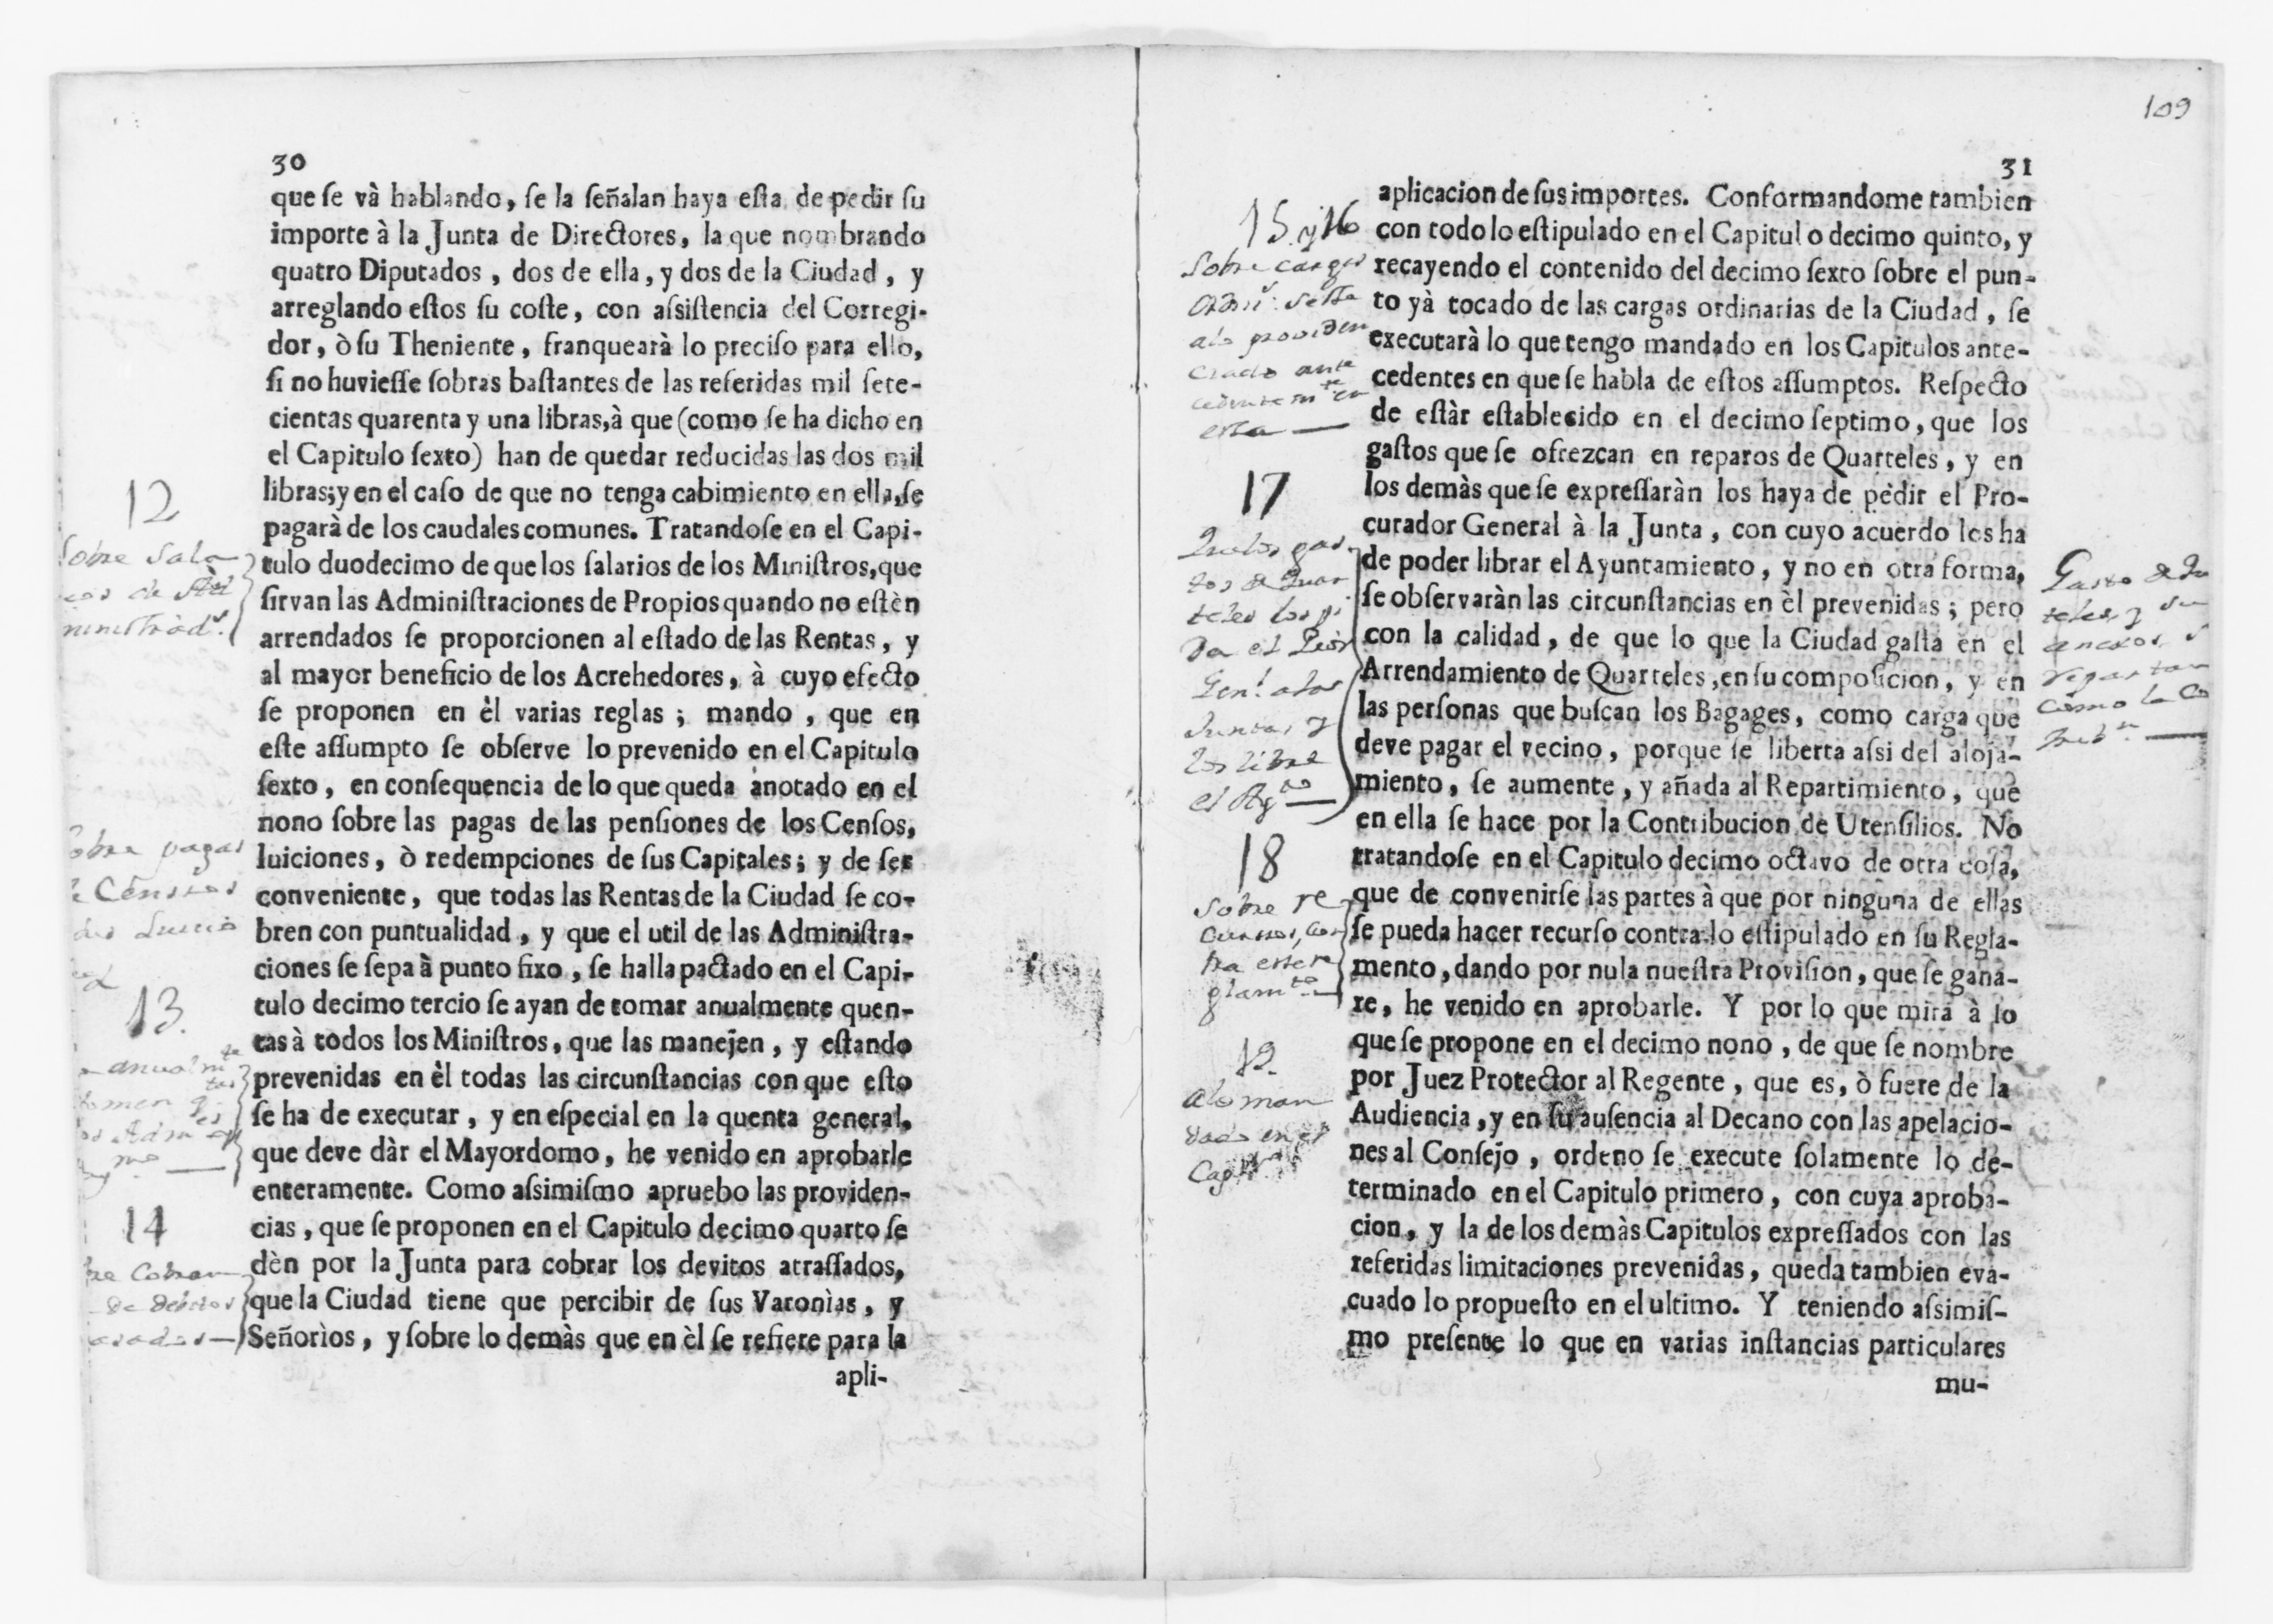 30
que ſe và hablando, ſe la ſeñalan haya eſta de pedir ſu
importe à la Junta de Directores, la que nombrando
quatro Diputados, dos de ella, y dos de la Ciudad, y
arreglando eſtos ſu coſte, con aſsiſtencia del Corregi-
dor, ò ſu Theniente, franquearà lo preciſo para ello,
ſi no huvieſſe ſobras baſtantes de las referidas mil ſete-
cientas quarenta y una libras, à que (como ſe ha dicho en
el Capitulo ſexto) han de quedar reducidas las dos mil
libras; y en el caſo de que no tenga cabimiento en ella, ſe
pagarà de los caudales comunes. Tratandoſe en el Capi-
tulo duodecimo de que los ſalarios de los Miniſtros, que
ſirvan las Adminiſtraciones de Propios quando no eſtèn
arrendados ſe proporcionen al eſtado de las Rentas, y
al mayor beneficio de los Acrehedores, à cuyo efecto
ſe proponen en èl varias reglas; mando, que en
eſte aſſumpto ſe obſerve lo prevenido en el Capitulo
ſexto, en conſequencia de lo que queda anotado en el
nono ſobre las pagas de las penſiones de los Cenſos,
luiciones, ò redempciones de ſus Capitales; y de ſer
conveniente, que todas las Rentas de la Ciudad ſe co-
bren con puntualidad, y que el util de las Adminiſtra-
ciones ſe ſepa à punto fixo, ſe halla pactado en el Capi-
tulo decimo tercio ſe ayan de tomar anualmente quen-
tas à todos los Miniſtros, que las manejen, y eſtando
prevenidas en èl todas las circunſtancias con que eſto
ſe ha de executar, y en eſpecial en la quenta general,
que deve dàr el Mayordomo, he venido en aprobarle
enteramente. Como aſsimiſmo apruebo las providen-
cias, que ſe proponen en el Capitulo decimo quarto ſe
dèn por la Junta para cobrar los devitos atraſſados,
que la Ciudad tiene que percibir de ſus Varonìas, y
Señorìos, y ſobre lo demàs que en èl ſe refiere para la
apli-
12
Sobre Sala
13
14
109
31
aplicacion de ſus importes. Conformandome tambien
con todo lo eſtipulado en el Capitulo decimo quinto, y
recayendo el contenido del decimo ſexto ſobre el pun-
to yà tocado de las cargas ordinarias de la Ciudad, ſe
executarà lo que tengo mandado en los Capitulos ante-
cedentes en que ſe habla de eſtos aſſumptos. Reſpecto
de eſtàr eſtablecido en el decimo ſeptimo, que los
gaſtos que ſe ofrezcan en reparos de Quarteles, y en
los demàs que ſe expreſſaràn los haya de pèdir el Pro-
curador General à la Junta, con cuyo acuerdo los ha
de poder librar el Ayuntamiento, y no en otra forma,
ſe obſervaràn las circunſtancias en èl prevenidas; pero
con la calidad, de que lo que la Ciudad gaſta en el
Arrendamiento de Quarteles, en ſu compoſicion, y en
las perſonas que buſcan los Bagages, como carga que
deve pagar el vecino, porque ſe liberta aſsi del aloja-
miento, ſe aumente, y añada al Repartimiento, que
en ella ſe hace por la Contribucion de Utenſilios. No
tratandoſe en el Capitulo decimo octavo de otra coſa,
que de convenirſe las partes à que por ninguna de ellas
ſe pueda hacer recurſo contra lo eſtipulado en ſu Regla-
mento, dando por nula nueſtra Proviſion, que ſe gana-
re, he venido en aprobarle. Y por lo que mira à lo
que ſe propone en el decimo nono, de que ſe nombre
por Juez Protector al Regente, que es, ò fuere de la
Audiencia, y en ſu auſencia al Decano con las apelacio-
nes al Conſejo, ordeno ſe execute ſolamente lo de-
terminado en el Capitulo primero, con cuya aproba-
cion, y la de los demàs Capitulos expreſſados con las
referidas limitaciones prevenidas, queda tambien eva-
cuado lo propueſto en el ultimo. Y teniendo aſsimiſ-
mo preſente lo que en varias inſtancias particulares
mu-
15 y 16
Sobre cargas
17
18
Sobre re
19
alo man
dado en el